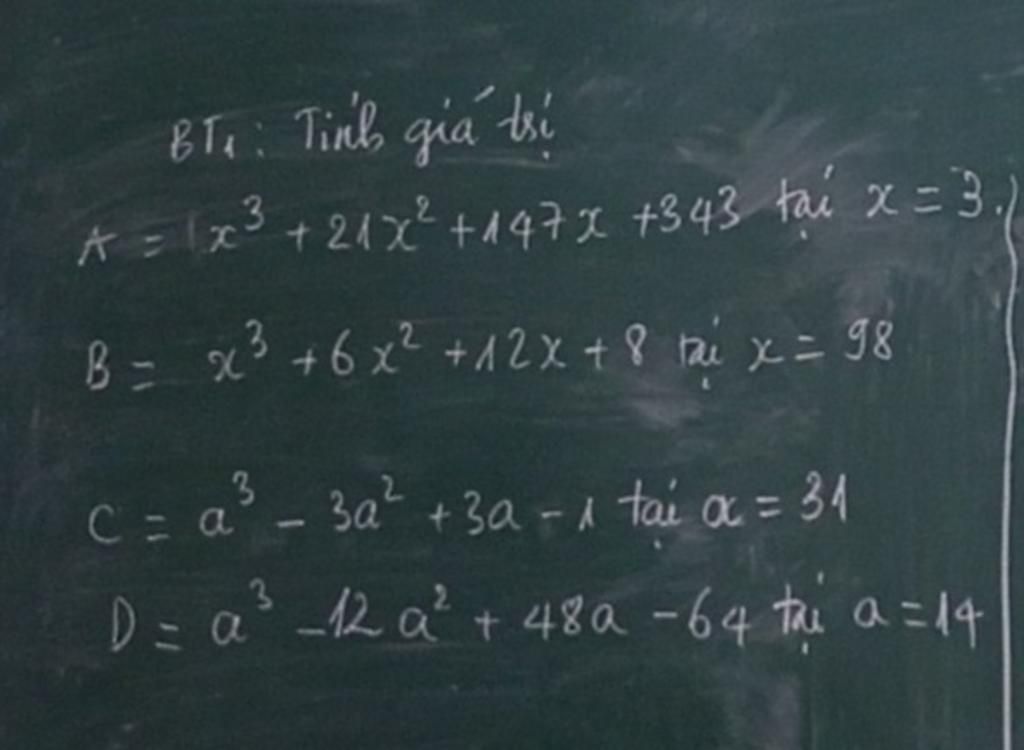 BT1: Tính giá trị
A = x³ + 21x² + 147x + 343 tại x = 3.
B = x³ + 6x² + 12x + 8 tại x = 98
C = a³ - 3a² + 3a - 1 tại a = 31
D = a³ - 12a² + 48a - 64 tại a = 14